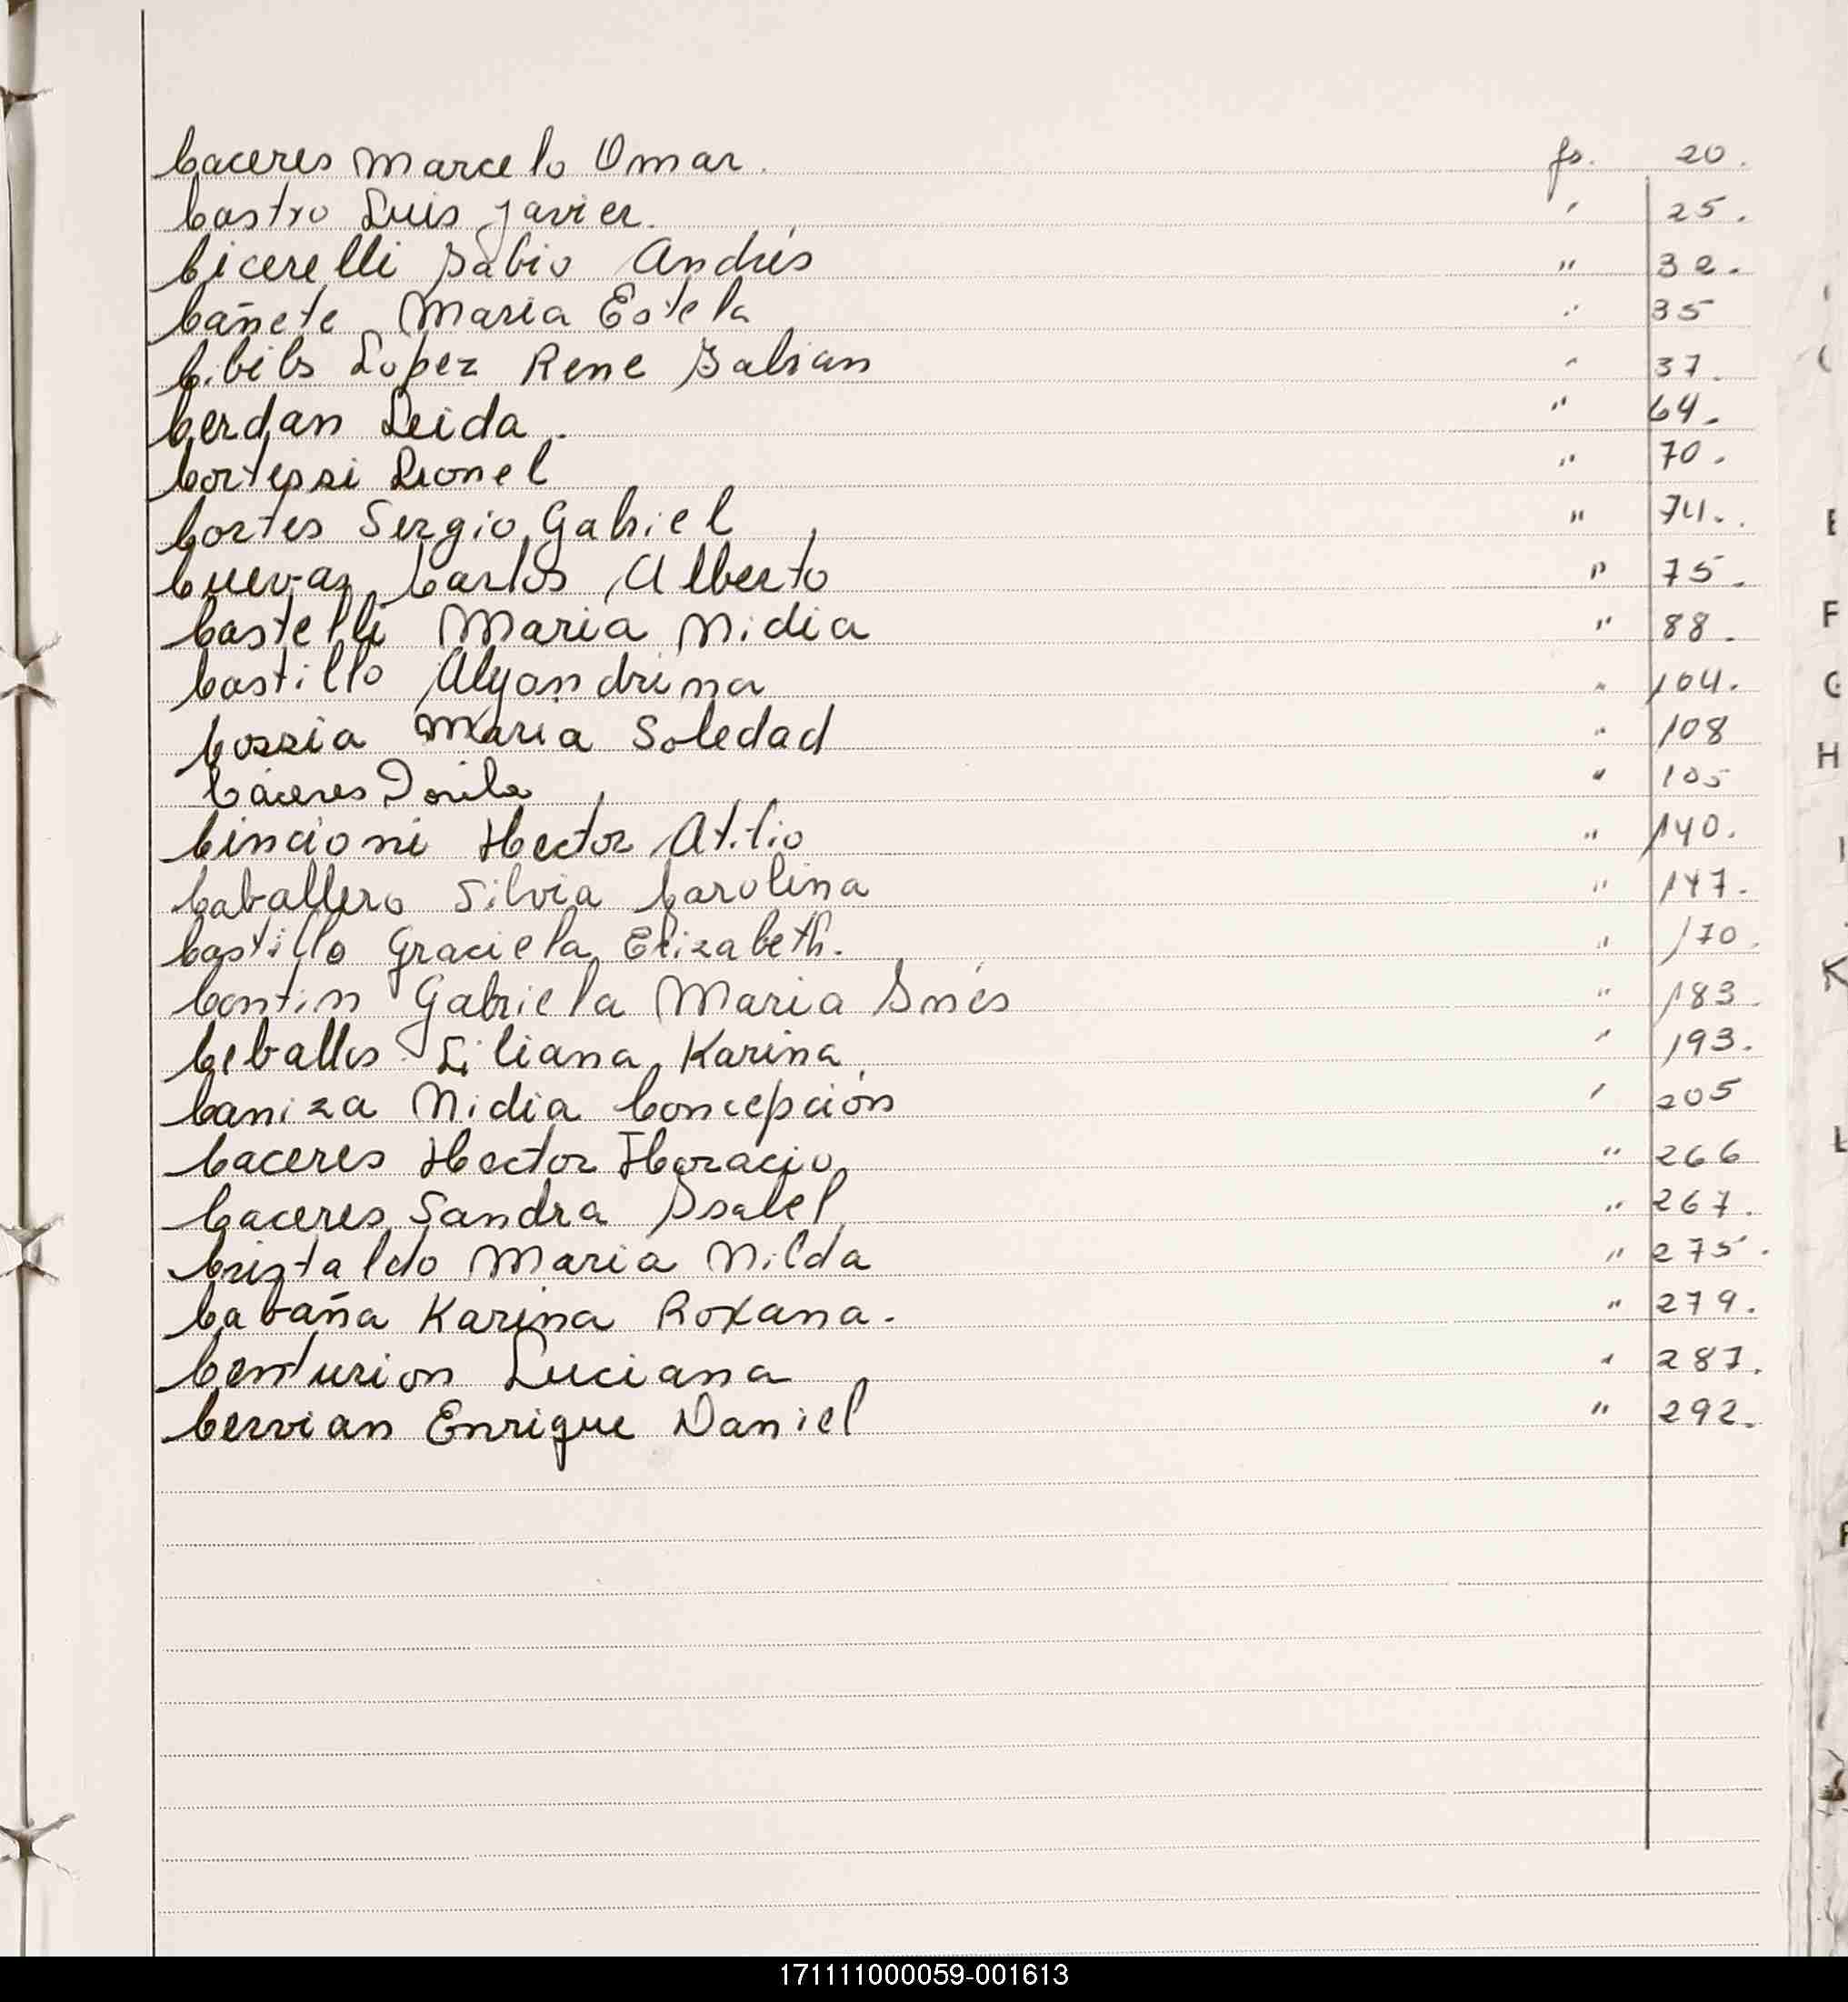 Caceres Marcelo Omar. fs. 20.
Castro Luis Javier. " 25.
Cicerelli Fabio Andrés " 32.
Cañete Maria Estela " 35
Cibils Lopez Rene Fabian " 37.
Cerdan Leida. " 64.
Cortessi Leonel " 70.
Cortes Sergio Gabriel " 74.
Cuevas Carlos Alberto " 75.
Castelli Maria Nidia " 88.
Castillo Alejandrina " 104.
Cossia Maria Soledad " 108
Cáceres Dorila " 105
Cincioni Hector Atilio " 140.
Caballero Silvia Carolina " 147.
Castillo Graciela Elizabeth. " 170.
Contin Gabriela Maria Inés " 183.
Ceballos Liliana Karina " 193.
Caniza Nidia Concepción " 205
Caceres Hector Horacio " 266
Caceres Sandra Isabel " 267.
Cristaldo Maria Nilda " 275.
Cabaña Karina Roxana. " 279.
Centurion Luciana " 287.
Cervian Enrique Daniel " 292.
E
F
G
H
I
K
L
171111000059-001613